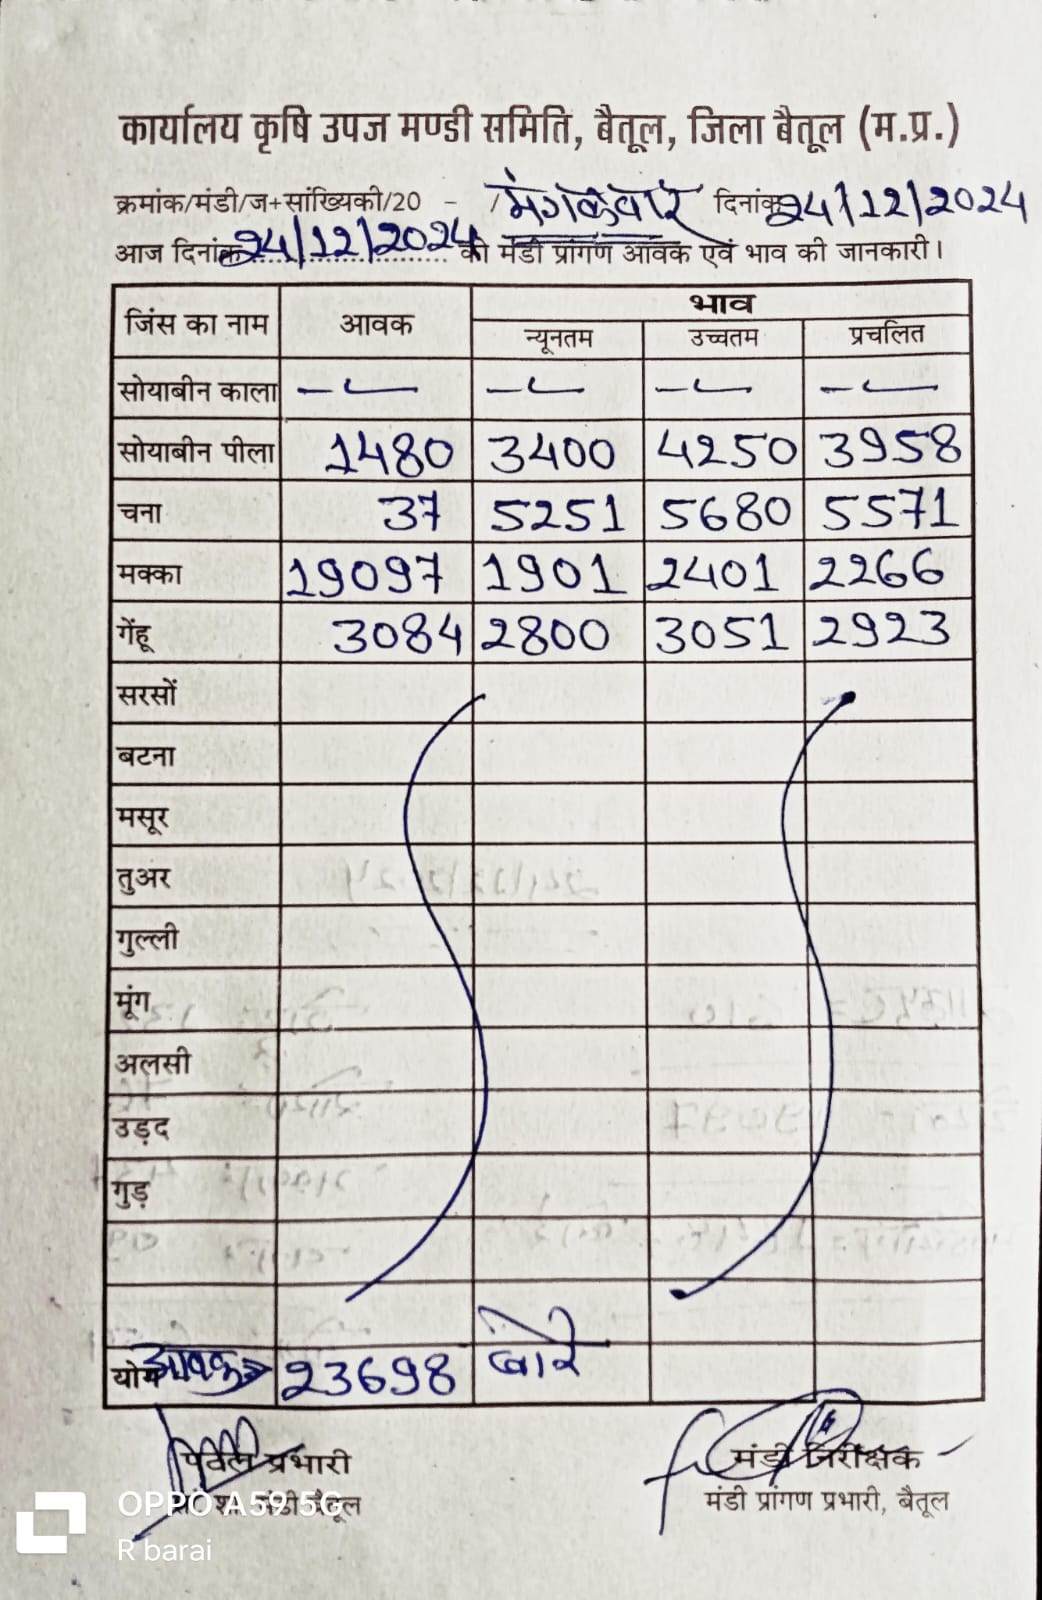 कार्यालय कृषि उपज मण्डी समिति, बैतूल, जिला बैतूल (म.प्र.)
क्रमांक/मंडी/ज+सांख्यिकी/20 - /मंगळवार दिनांक 24/12/2024
आज दिनांक 24/12/2024 की मंडी प्रांगण आवक एवं भाव की जानकारी।
जिंस का नाम आवक भाव
न्यूनतम उच्चतम प्रचलित
सोयाबीन काला
सोयाबीन पीला 1480 3400 4250 3958
चना 37 5251 5680 5571
मक्का 19097 1901 2401 2266
गेंहू 3084 2800 3051 2923
सरसों
बटना
मसूर
तुअर
गुल्ली
मूंग
अलसी
उड़द
गुड़
योग आवक 23698 बोरे
प्रभारी मंडी निरीक्षक
मंडी बैतूल मंडी प्रांगण प्रभारी, बैतूल
OPPO A59 5G
R barai